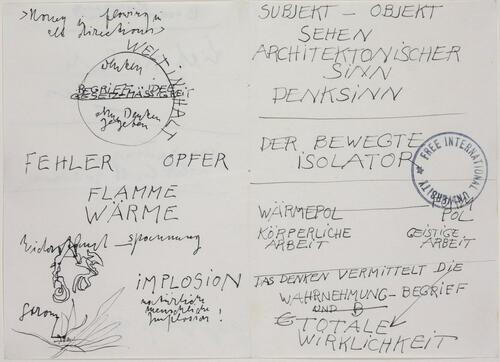 >Money is flowing in
all directions<
WELTINHALT
denken
BEGRIFF IDEE
GESETZMÄSSIGKEIT
ohne Denken
gegeben
FEHLER OPFER
FLAMME
WÄRME
spannung
IMPLOSION
natürlich
menschliche
Implosion!
SUBJEKT – OBJEKT
SEHEN
ARCHITEKTONISCHER
SINN
DENKSINN
DER BEWEGTE
ISOLATOR
FREE INTERNATIONAL UNIVERSITY
WÄRMEPOL POL
KÖRPERLICHE GEISTIGE
ARBEIT ARBEIT
DAS DENKEN VERMITTELT DIE
WAHRNEHMUNG – BEGRIEF
UND B
TOTALE
WIRKLICHKEIT